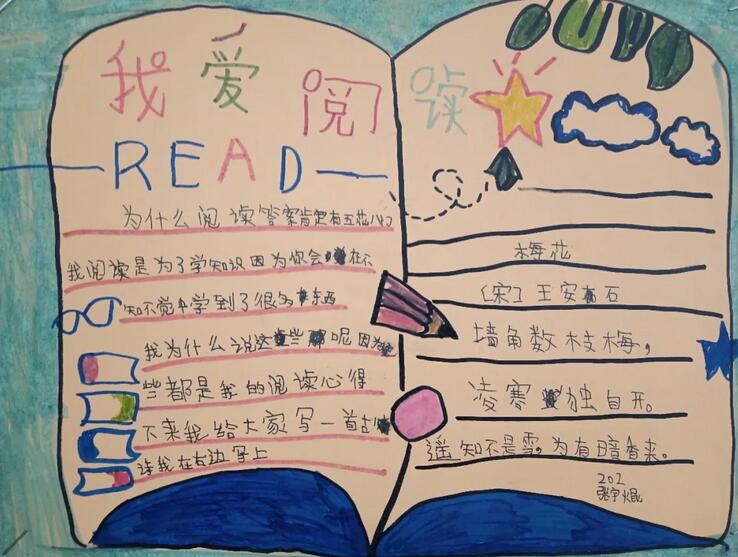 我爱阅读
READ
为什么阅读答案肯定有五花八门
我阅读是为了学知识因为你会在不
知不觉中学到了很多东西
我为什么说这些呢因为这
些都是我的阅读心得
下来我给大家写一首古诗
诗我在右边写上
梅花
[宋]王安石
墙角数枝梅,
凌寒独自开。
遥知不是雪,为有暗香来。
202